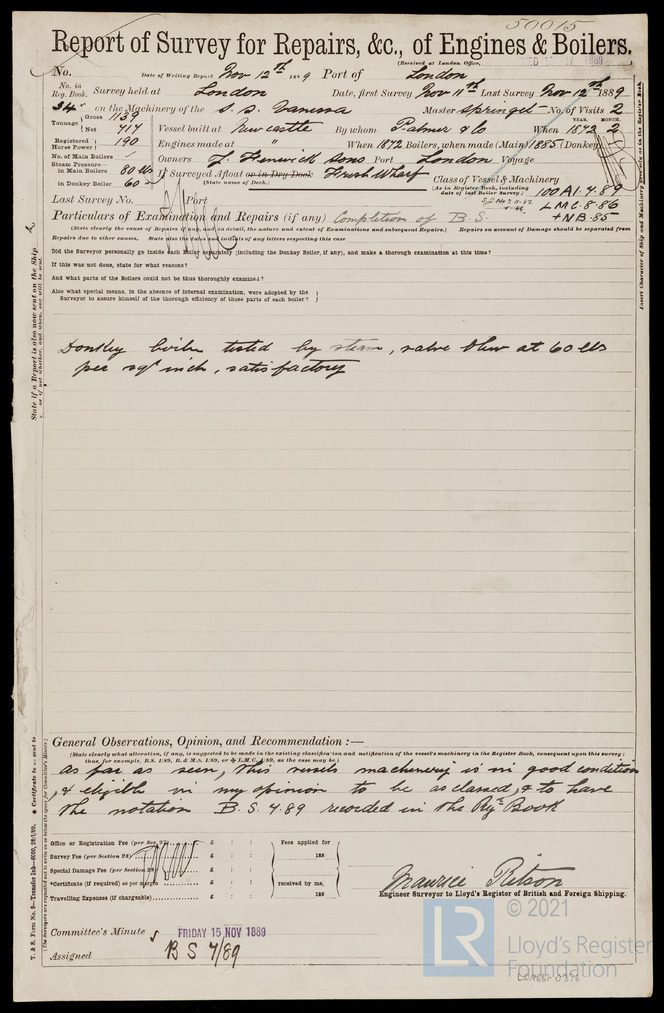 50015
Report of Survey for Repairs, &c., of Engines & Boilers.
(Received at London Office,
No. Date of Writing Report Nov 12th 1889 Port of London
No. in Reg. Book. Survey held at London Date, first Survey Nov 11th Last Survey Nov 12th 1889
34 on the Machinery of the S.S. Vanessa Master Springet No. of Visits 2
Tonnage Gross 1139
Net 717 Vessel built at Newcastle By whom Palmer & Co When 1872 YEAR. MONTH. 2
Registered Horse Power 190 Engines made at " When 1872 Boilers, when made (Main) 1885 (Donkey)
No. of Main Boilers Owners J. Fenwick Sons Port London Voyage
Steam Pressure in Main Boilers 80 lbs If Surveyed Afloat or in Dry Dock Fresh Wharf
(State name of Dock.)
in Donkey Boiler 60 "
Class of Vessel & Machinery
(As in Register Book, including date of last Boiler Survey.)
100A1.4.89
LMC.8.86
+NB.85
Last Survey No. Port
Particulars of Examination and Repairs (if any) Completion of B.S.
(State clearly the cause of Repairs if any, and in detail, the nature and extent of Examinations and subsequent Repairs.) Repairs on account of Damage should be separated from
Repairs due to other causes, State also the dates and initials of any letters respecting this case
Did the Surveyor personally go inside each boiler separately (including the Donkey Boiler, if any), and make a thorough examination at this time?
If this was not done, state for what reasons?
And what parts of the Boilers could not be thus thoroughly examined?
Also what special means, in the absence of internal examination, were adopted by the
Surveyor to assure himself of the thorough efficiency of those parts of each boiler?
Donkey boiler tested by steam, valve blew at 60 lbs
per sqr inch, satisfactory
General Observations, Opinion, and Recommendation :—
(State clearly what alteration, if any, is suggested to be made in the existing classification and notification of the vessel's machinery in the Register Book, consequent upon this survey;
thus, for example, B.S. 1/89, B. & M.S. 1/89, or + L.M.C. 1/89, as the case may be.)
As far as seen, this vessels machinery is in good condition
& eligible in my opinion to be as classed, & to have
the notation B.S. 4.89 recorded in the Regr. Book
Office or Registration Fee (per Sec. 27) £ : : Fees applied for
Survey Fee (per Section 28) £ : : 188
Special Damage Fee (per Section 28) £ : :
*Certificate (if required) as per margin £ : : received by me,
Travelling Expenses (if chargeable) £ : : 188
Maurice Ritson
Engineer Surveyor to Lloyd's Register of British and Foreign Shipping.
Committee's Minute FRIDAY 15 NOV 1889
Assigned BS 4/89
© 2021
LR
Lloyd's Register
Foundation
T. & S. Form No. 9—Transfer Ink—6000, 28/1/89.
Insert Character of Ship and Machinery precisely as in the Register Book.